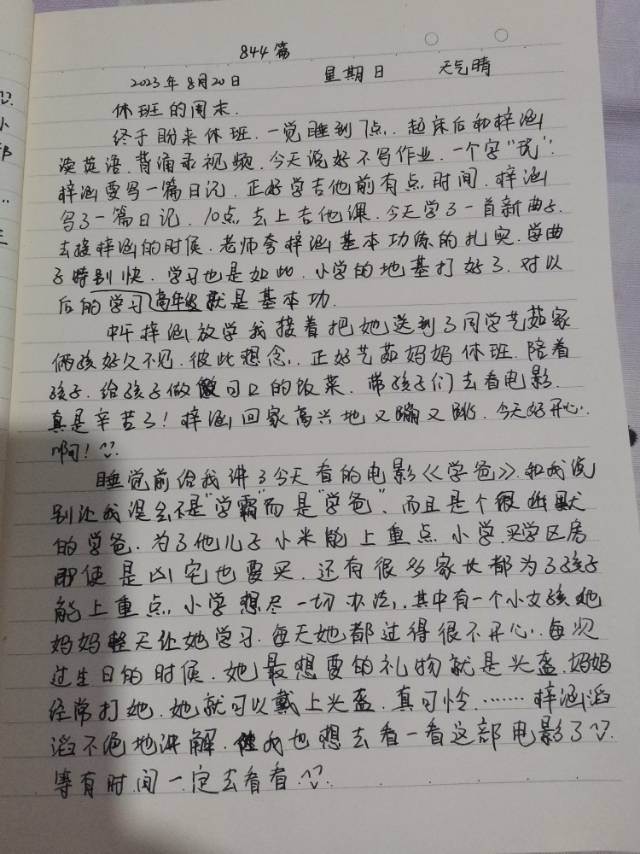 844篇
2023年8月20日 星期日 天气晴
休班的周末.
终于盼来休班.一觉睡到7点.起床后和梓涵
读英语.背诵录视频.今天说好不写作业.一个字"玩".
梓涵要写一篇日记.正好学吉他前有点时间.梓涵
写了一篇日记.10点去上吉他课.今天学了一首新曲子.
去接梓涵的时候.老师夸梓涵基本功练的扎实.学曲
子特别快.学习也是如此.小学的地基打好了.对以
后的学习高年级就是基本功.
中午梓涵放学我接着把她送到了同学艺茹家
俩孩好久不见.彼此想念.正好艺茹妈妈休班.陪着
孩子.给孩子做可口的饭菜.带孩子们去看电影.
真是辛苦了!梓涵回家高兴地又蹦又跳.今天好开心.
啊!
睡觉前给我讲了今天看的电影《学爸》.和我说
别让我误会不是"学霸"而是"学爸".而且是个很幽默
的学爸.为了他儿子小米能上重点小学.买学区房
即使是凶宅也要买.还有很多家长都为了孩子
能上重点小学想尽一切办法.其中有一个小女孩她
妈妈整天让她学习.每天她都过得很不开心.每次
过生日的时候.她最想要的礼物就是头盔.妈妈
经常打她.她就可以戴上头盔.真可怜.……梓涵滔
滔不绝地讲解.我也想去看一看这部电影了
等有时间一定去看看.